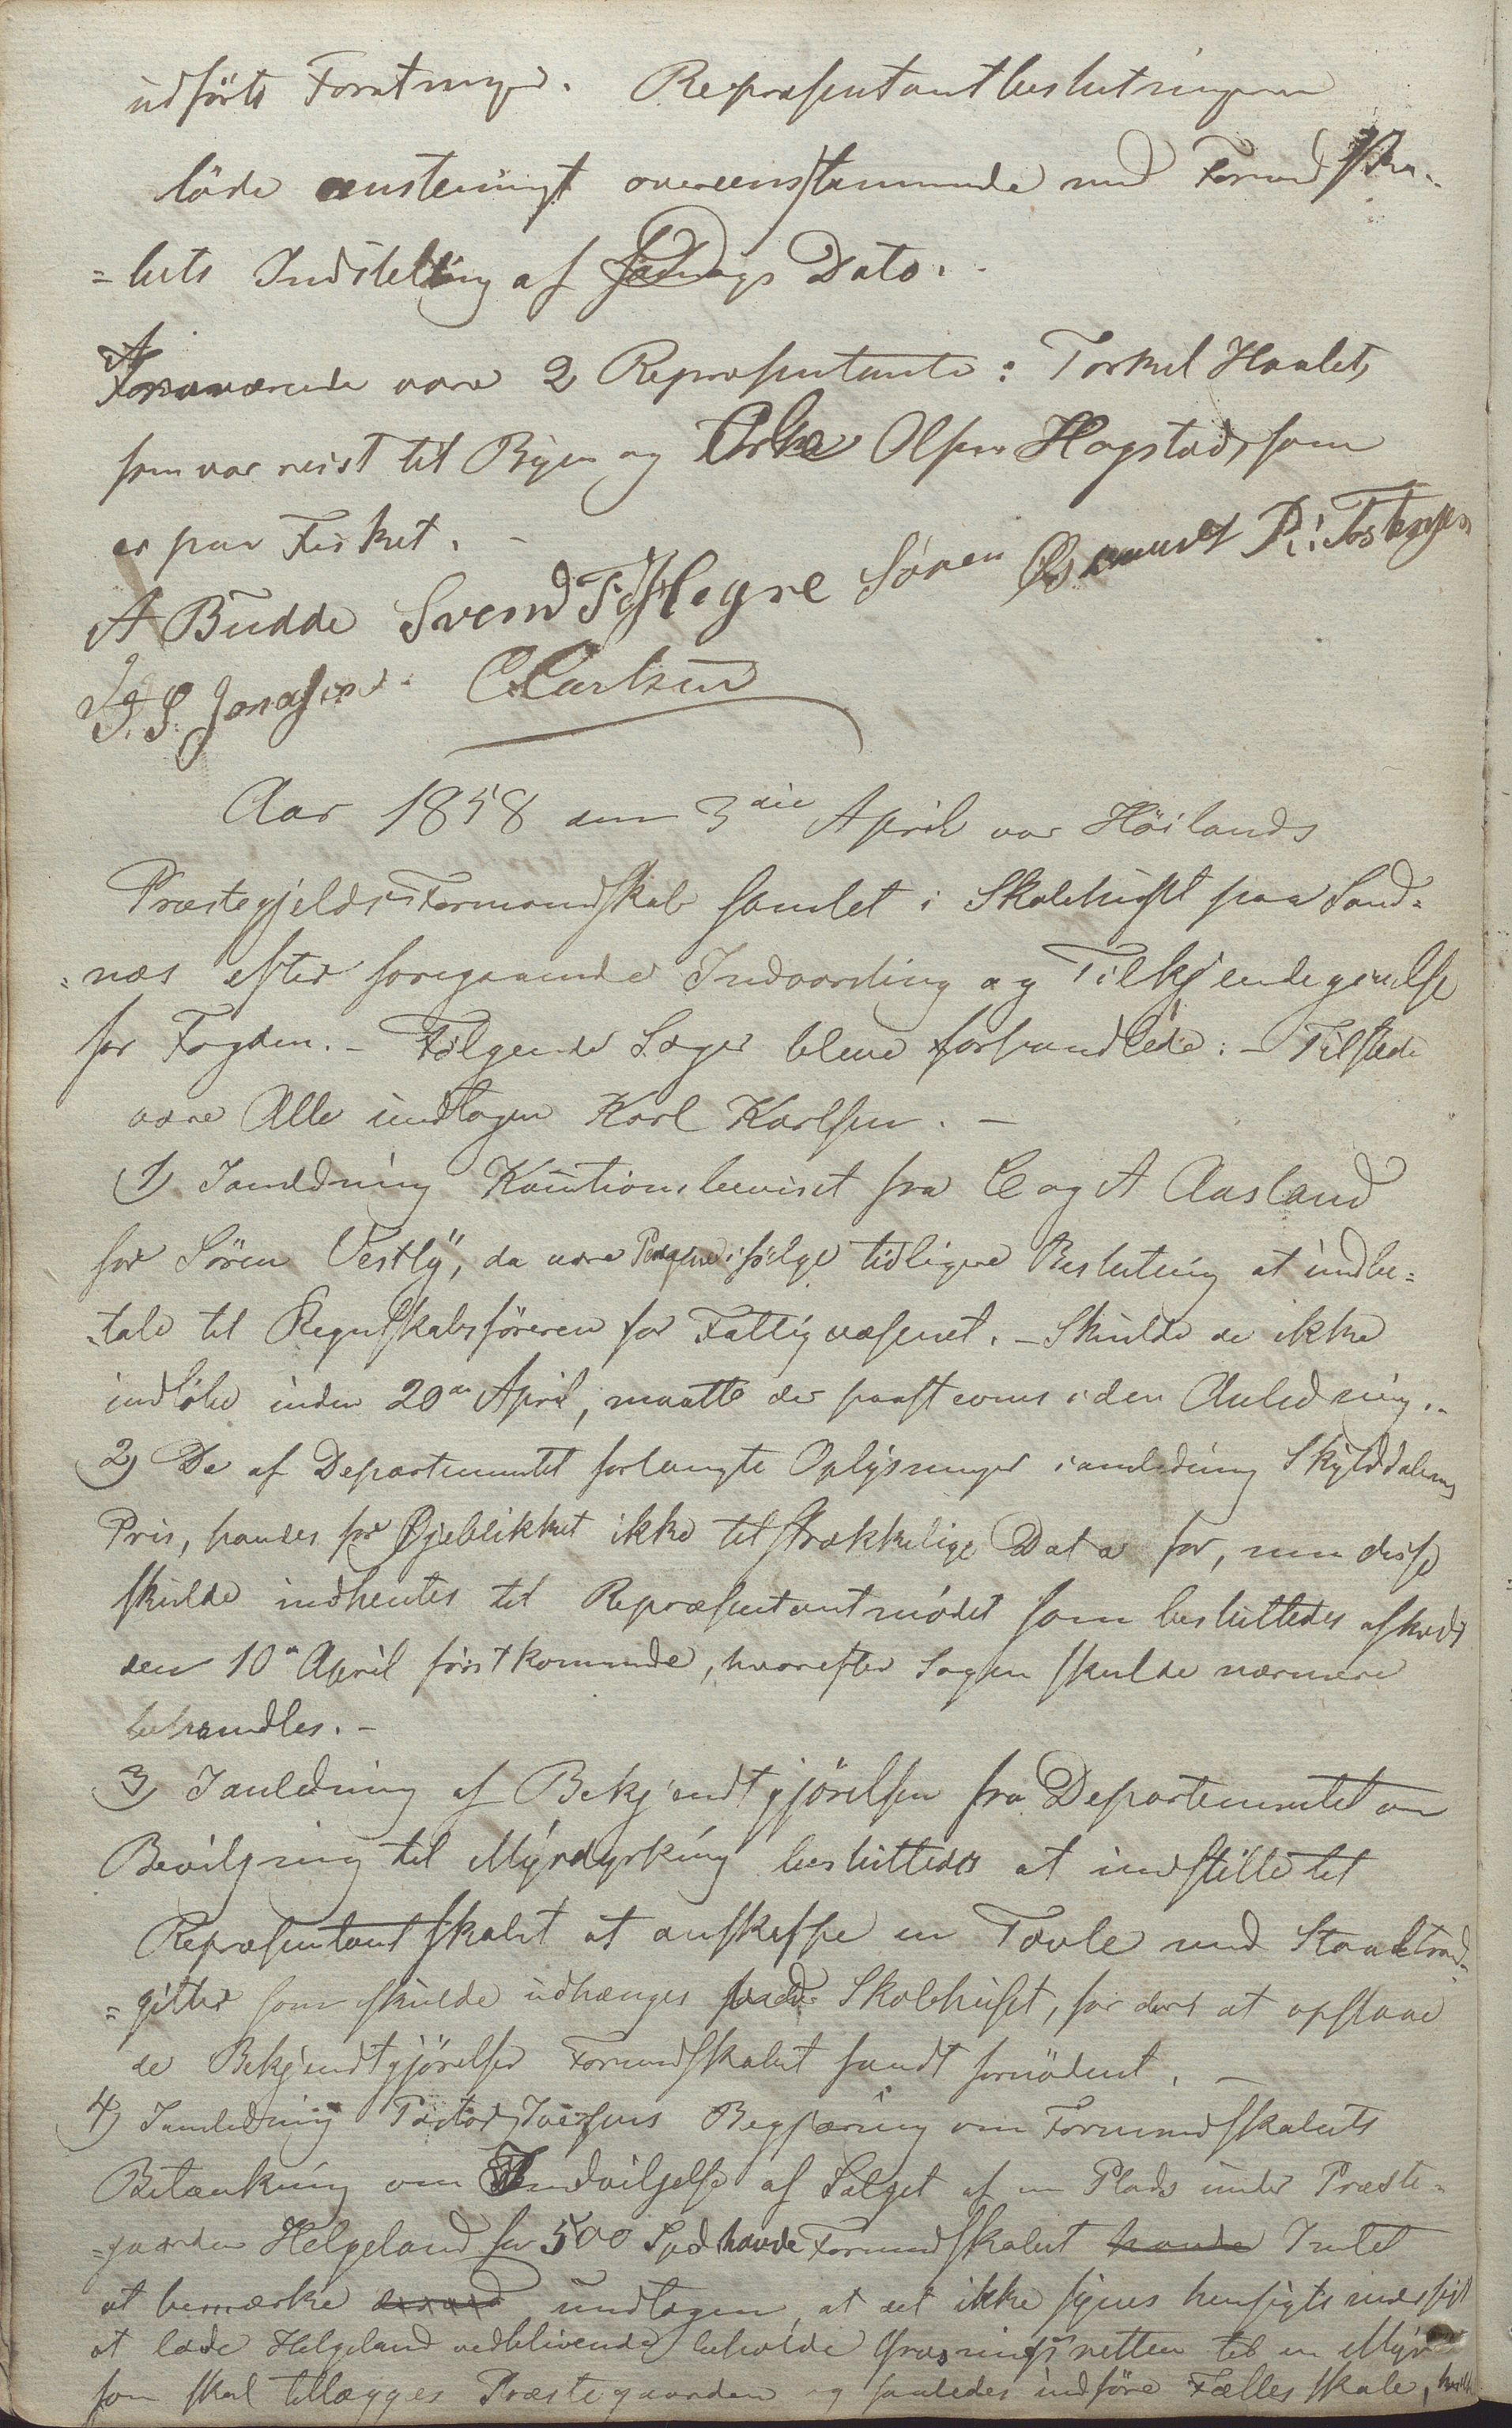 udförte Forretninger. Repræsentantbeslutningen
löd eenstemigt overeensstemmende med Formandska-
=bets Indstilling af Dags Dato.
Fraværende vare 2 Repræsentanter: Torkel Haalet,
som var reist til Byen og Olsen Hogstad, som
er paa Fisket. -
A Budde Svend T Hegre Sören Osmund R: Tostensen
J. S. Jonassen. C Carlsen
Aar 1858 den 3die April var Höilands
Præstegjelds Formandskab samlet i Skolehuset paa Sand=
=næs efter foregaaende Indvarsling og Tilkjendegivelse
for Fogden. - Følgende Sager bleve forhandlede: - Tilstede
vare Alle undtagen Karl Karlsen. -
1) I anledning Kautionsbeviset fra C og A Aasland
for Sören Vestly, da vare Pengene ifölge tidligere Beslutning at indbe=
=tale til Regnskabsföreren for Fattigvæsenet. - Skulde de ikke
indløbe inden 20de April, maatte der paastevnes i den Anledning. -
2) De af Departementet forlangte Oplysninger i anledning Skylddalerens
Pris, havdes for Øjeblikket ikke tilstrækkelige Data for, men disse
skulde indhentes til Repræsentantmödet som besluttedes afholdt
den 10de April förstkommende, hvorefter Sagen skulde nærmere
behandles. -
3) I anledning af Bekjendtgjörelsen fra Departementet om
Bevilgning til Myrdyrkning besluttedes at indstille til
Repræsentantskabet at anskaffe en Tavle med Staaltraad-
=gitter som skulde udhænges ved Skolehuset, for der at opslaae
de Bekjendtgjörelser Formandskabet fandt fornödent. -
4) I anledning Pastor Iversens Begjæring om Formandskabets
Betænkning om Indvilgelse af Salget af en Plads under Præste-
=gaarden Helgeland for 500 Spd havde Formandskabet havde Intet
at bemærke undtagen, at det ikke synes hensigtsmæssigt
at lade Helgeland vedblivende beholde Græsningsretten til en Myr
som skal tillægges Præstegaarden og saaledes indföre Fællesskab,